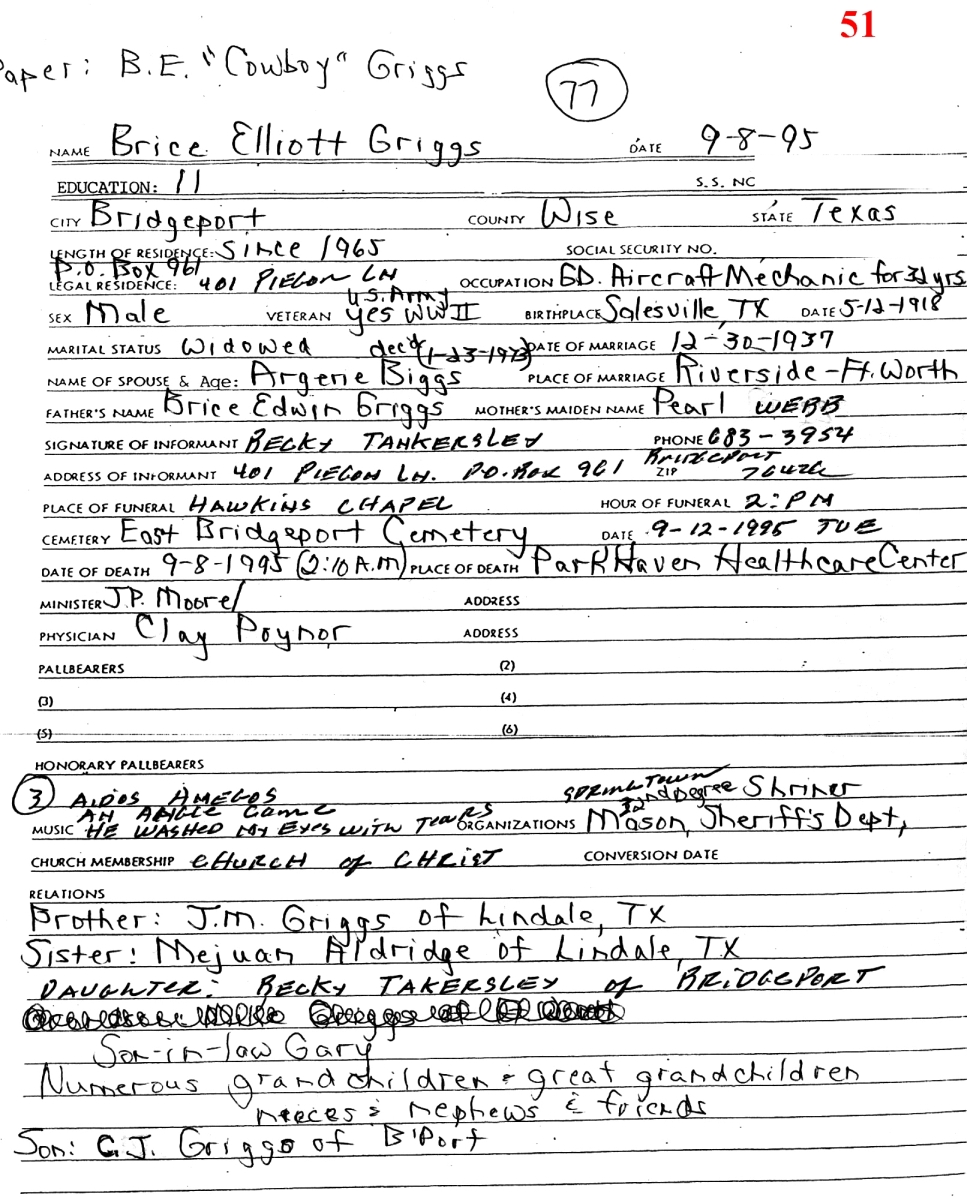 51
Paper: B.E. "Cowboy" Griggs
77
NAME Brice Elliott Griggs DATE 9-8-95
EDUCATION: 11 S.S. NC
CITY Bridgeport COUNTY Wise STATE Texas
LENGTH OF RESIDENCE: Since 1965 SOCIAL SECURITY NO.
P.O. Box 961
LEGAL RESIDENCE: 401 PIEGON LN OCCUPATION GD. Aircraft Mechanic for 32 yrs
U.S. Army
SEX Male VETERAN yes WW II BIRTHPLACE Salesville, TX DATE 5-12-1918
MARITAL STATUS Widowed dec'd (1-23-1973) DATE OF MARRIAGE 12-30-1937
NAME OF SPOUSE & Age: Argene Biggs PLACE OF MARRIAGE Riverside - Ft. Worth
FATHER'S NAME Brice Edwin Griggs MOTHER'S MAIDEN NAME Pearl WEBB
SIGNATURE OF INFORMANT BECKY TANKERSLEY PHONE 683-3954
ADDRESS OF INFORMANT 401 PIEGON LN. P.O. Box 961 BRIDGEPORT ZIP 76426
PLACE OF FUNERAL HAWKINS CHAPEL HOUR OF FUNERAL 2: PM
CEMETERY East Bridgeport Cemetery DATE 9-12-1995 TUE
DATE OF DEATH 9-8-1995 (2:10 A.M) PLACE OF DEATH Park Haven Healthcare Center
MINISTER J.P. Moore/ ADDRESS
PHYSICIAN Clay Poynor ADDRESS
PALLBEARERS (2)
(3) (4)
(5) (6)
HONORARY PALLBEARERS
3 AIDOS AMEGOS SPRINGTOWN
AN ANGLE CAME 32nd Degree Shriner
MUSIC HE WASHED MY EYES WITH TEARS ORGANIZATIONS Mason, Sheriff's Dept,
CHURCH MEMBERSHIP CHURCH of CHRIST CONVERSION DATE
RELATIONS
Brother: J.M. Griggs of Lindale, TX
Sister: Mejuan Aldridge of Lindale, TX
DAUGHTER: BECKY TAKERSLEY of BRIDGEPORT
Son-in-law Gary
Numerous grandchildren & great grandchildren
neeces & nephews & friends
Son: C.J. Griggs of B'Port